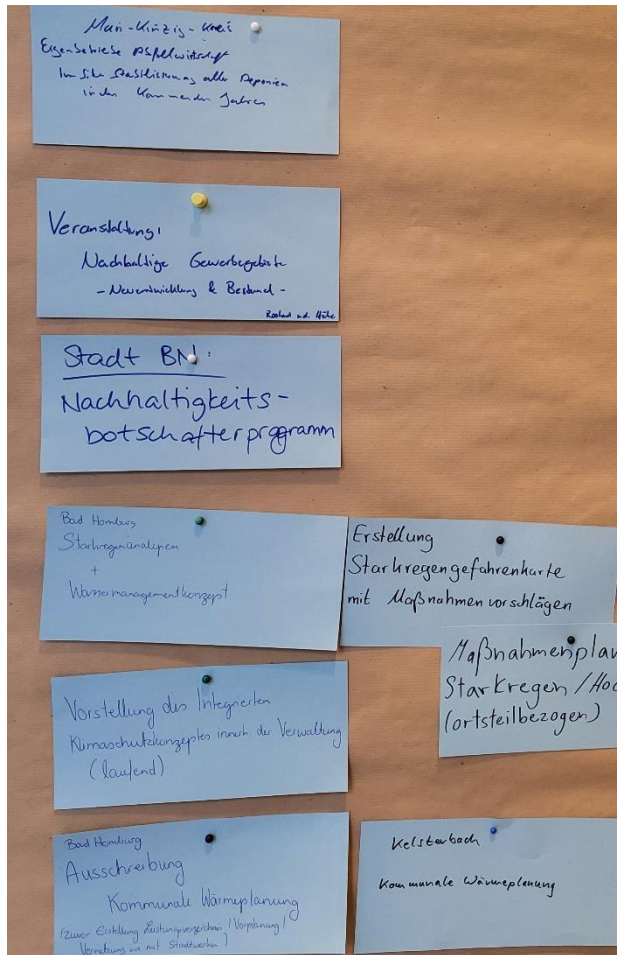 Main-Kinzig-Kreis
Eigenbetriebe Abfallwirtschaft
In Situ Stabilisierung aller Deponien
in den kommenden Jahren
Veranstaltung:
Nachhaltige Gewerbegebiete
- Neuentwicklung & Bestand -
Stadt BN:
Nachhaltigkeits-
botschafterprogramm
Bad Homburg
Starkregenanalysen
+
Wassermanagementkonzept
Erstellung
Starkregengefahrenkarte
mit Maßnahmenvorschlägen
Maßnahmenplan
Starkregen / Hoc
(ortsteilbezogen)
Vorstellung des Integrierten
Klimaschutzkonzeptes innerh. der Verwaltung
(laufend)
Bad Homburg
Ausschreibung
Kommunale Wärmeplanung
(zuvor Erstellung Leistungsverzeichnis / Vorplanung /
Vernetzung mit Stadtwerken)
Kelsterbach
Kommunale Wärmeplanung